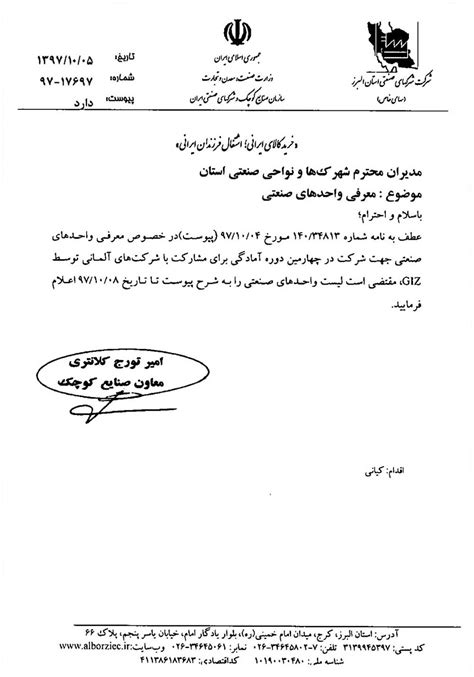 جمهوری اسلامی ایران
وزارت صنعت، معدن و تجارت
سازمان صنایع کوچک و شهرکهای صنعتی ایران
شرکت شهرکهای صنعتی استان البرز
(سهامی خاص)
تاریخ: ۱۳۹۷/۱۰/۰۵
شماره: ۹۷-۱۷۶۹۷
پیوست: دارد
«خرید کالای ایرانی؛ اشتغال فرزندان ایرانی»
مدیران محترم شهرک‌ها و نواحی صنعتی استان
موضوع : معرفی واحدهای صنعتی
باسلام و احترام؛
عطف به نامه شماره ۱۴۰/۳۴۸۱۳ مورخ ۹۷/۱۰/۰۴ (پیوست)در خصوص معرفی واحدهای
صنعتی جهت شرکت در چهارمین دوره آمادگی برای مشارکت با شرکت‌های آلمانی توسط
GIZ، مقتضی است لیست واحدهای صنعتی را به شرح پیوست تا تاریخ ۹۷/۱۰/۰۸ اعلام
فرمایید.
امیر تورج کلانتری
معاون صنایع کوچک
اقدام: کیانی
آدرس: استان البرز، کرج، میدان امام خمینی(ره)، بلوار یادگار امام، خیابان یاسر پنجم، پلاک ۶۶
کد پستی: ۳۱۳۹۹۴۵۳۹۷ تلفن: ۷-۳۴۶۴۵۸۰۲-۰۲۶ نمابر: ۳۴۶۴۵۰۶۱-۰۲۶ وب‌سایت: www.alborziec.ir
شناسه ملی: ۱۰۱۹۰۰۳۰۴۸۰ کداقتصادی: ۴۱۱۳۸۶۱۸۳۶۸۳